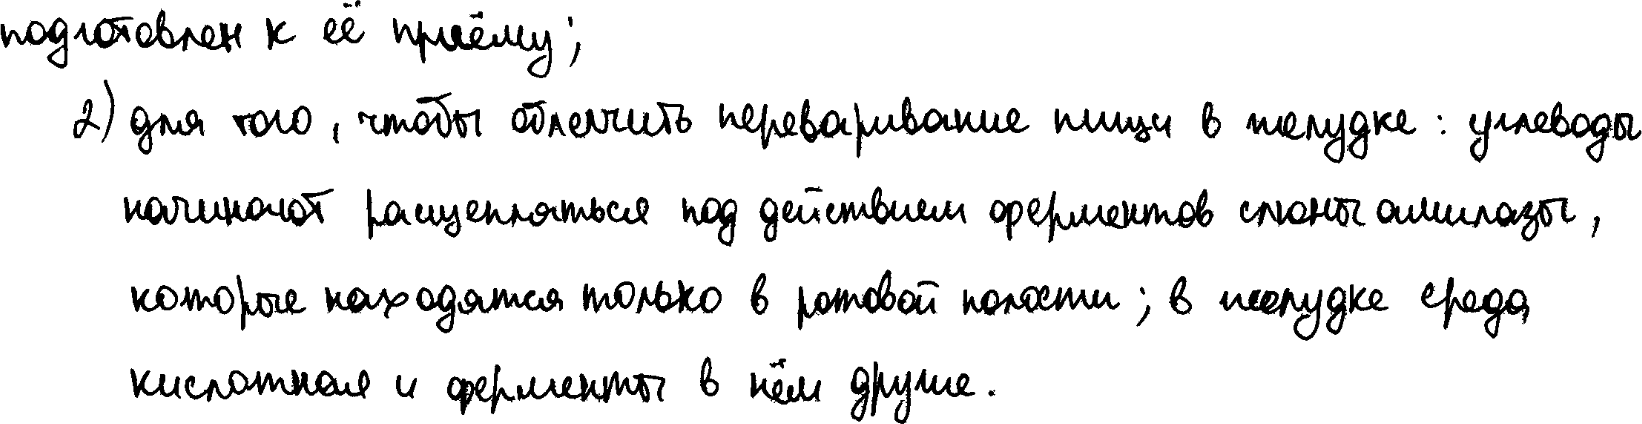 подготовлен к её приёму;
2) для того, чтобы облегчить переваривание пищи в желудке: углеводы
начинают расщепляться под действием ферментов слюны амилазы,
которые находятся только в ротовой полости; в желудке среда
кислотная и ферменты в нём другие.